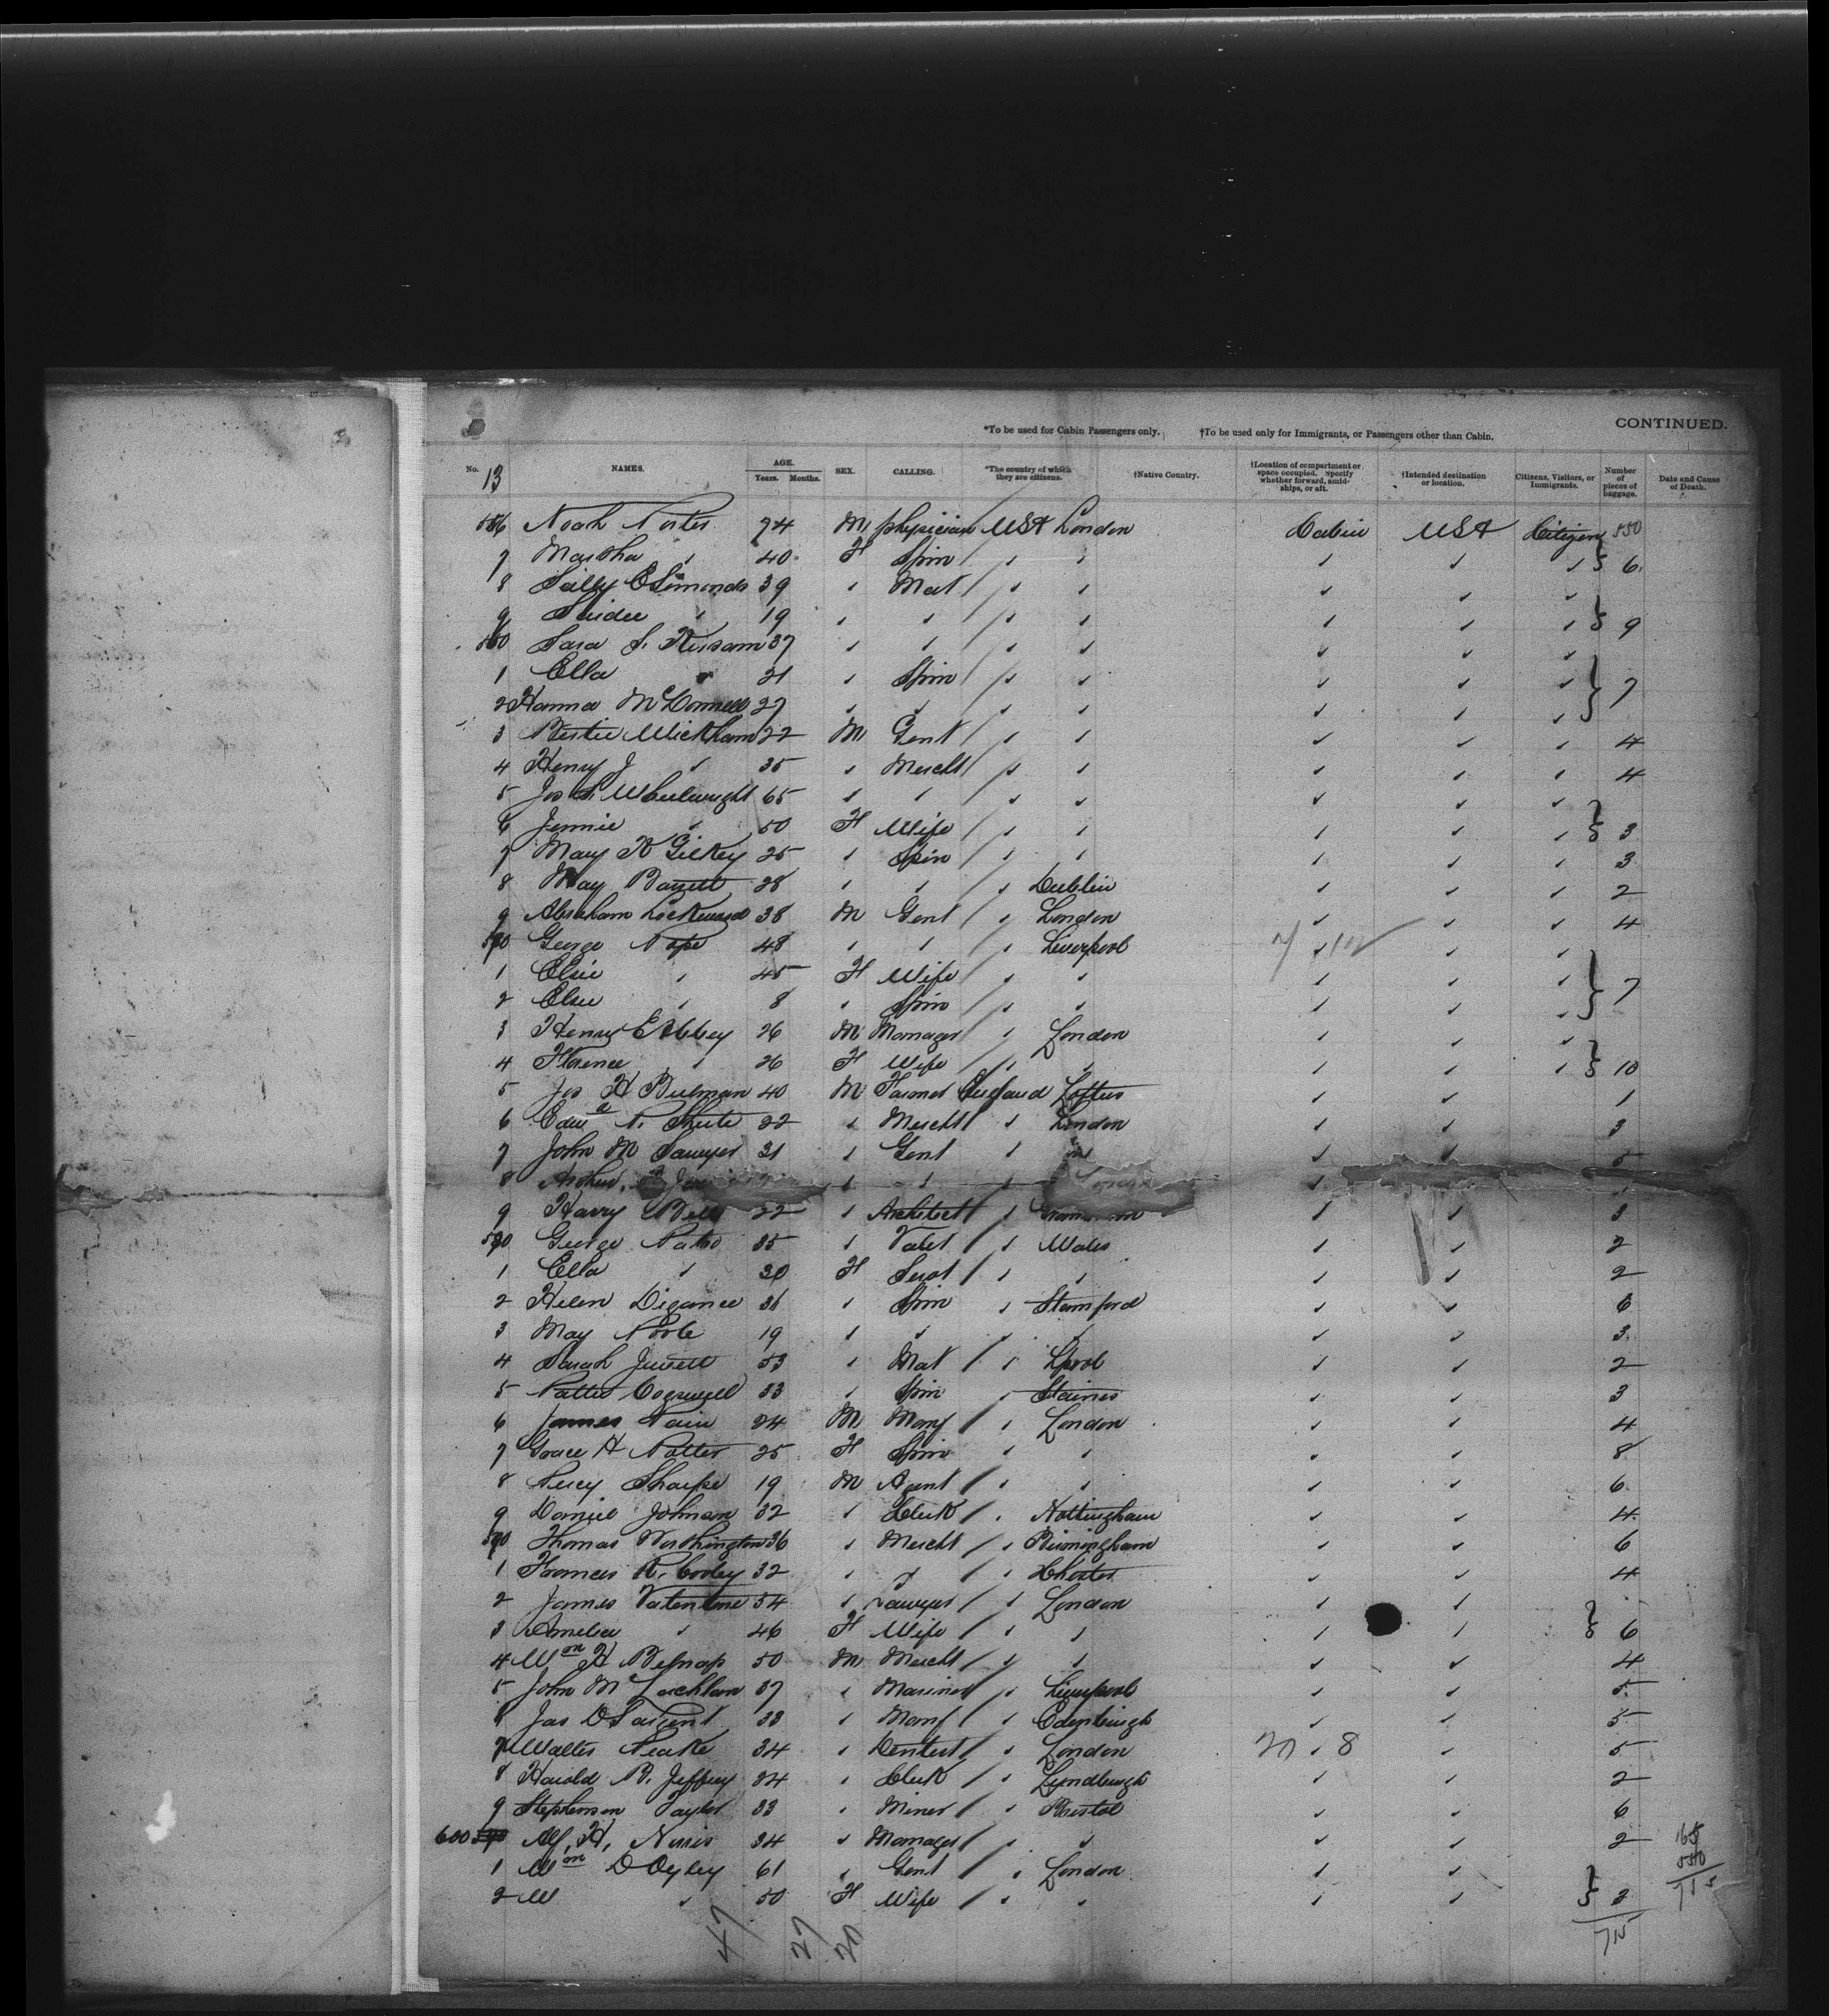 CONTINUED.
*To be used for Cabin Passengers only. †To be used only for Immigrants, or Passengers other than Cabin.
No. NAMES. AGE. Years. Months. SEX. CALLING. *The country of which they are citizens. †Native Country. †Location of compartment or space occupied. Specify whether forward, amidships, or aft. †Intended destination or location. Citizens, Visitors, or Immigrants. Number of pieces of baggage. Date and Cause of Death.
13
556 Noah 74 M physician USA London Cabin USA Citizen 550
7 Martha 40 F Spin 6
8 Sally E Simonds 39 Mat
9 19 9
560 Sara S. 37
1 Ella 21 Spin 7
2 Hanna McDonnell 27
3 Wickham 22 M Gent 4
4 Henry J 35 Mercht 4
5 Jos S. Wheelwright 65
6 Jennie 50 F Wife 3
7 Mary K Gilkey 25 Spin 3
8 May 28 Dublin 2
9 Abraham Lockwood 38 M Gent London 4
George 48 Liverpool
1 Elsie 45 F Wife 7
2 Elsie 8 Spin
3 Henry E Abbey 26 M Manager London
4 Florence 26 F Wife 10
5 Jos H Bulman 40 M Farmer England Loftus 1
6 22 Mercht London 3
7 John M Sawyer 31 Gent 5
8
9 Harry 22 Architect 3
George 35 Valet Wales 2
1 Ella 30 F Servt 2
2 Helen 31 Spin Stamford 6
3 May 19 3
4 Sarah Jewett 53 Mat Lpool 2
5 Cogswell 33 Spin Staines 3
6 James 24 M Manf London 4
7 Grace H Potter 25 F Spin 8
8 Percy Sharpe 19 M Agent 6
9 Daniel Johnson 32 Clerk Nottingham 4
590 Thomas Worthington 36 Mercht Birmingham 6
1 Frances R. Cooley 32 Chester 4
2 James Valentine 54 Lawyer London
3 Amelia 46 F Wife 6
4 Wm H Belnap 50 M Mercht 4
5 John McLachlan 37 Mariner Liverpool 5
Jas D Sargent 33 Manf Edenburgh 5
7 Walter Peake 34 Dentist London 20 8 5
8 Harold B. Jeffrey 24 Clerk 2
9 Stephenson Taylor 33 Miner Bristol 6
600 H. Norris 34 Manager 2
1 Wm D Oyley 61 Gent London
2 W 50 F Wife 2
165
550
715
715
47 27 20